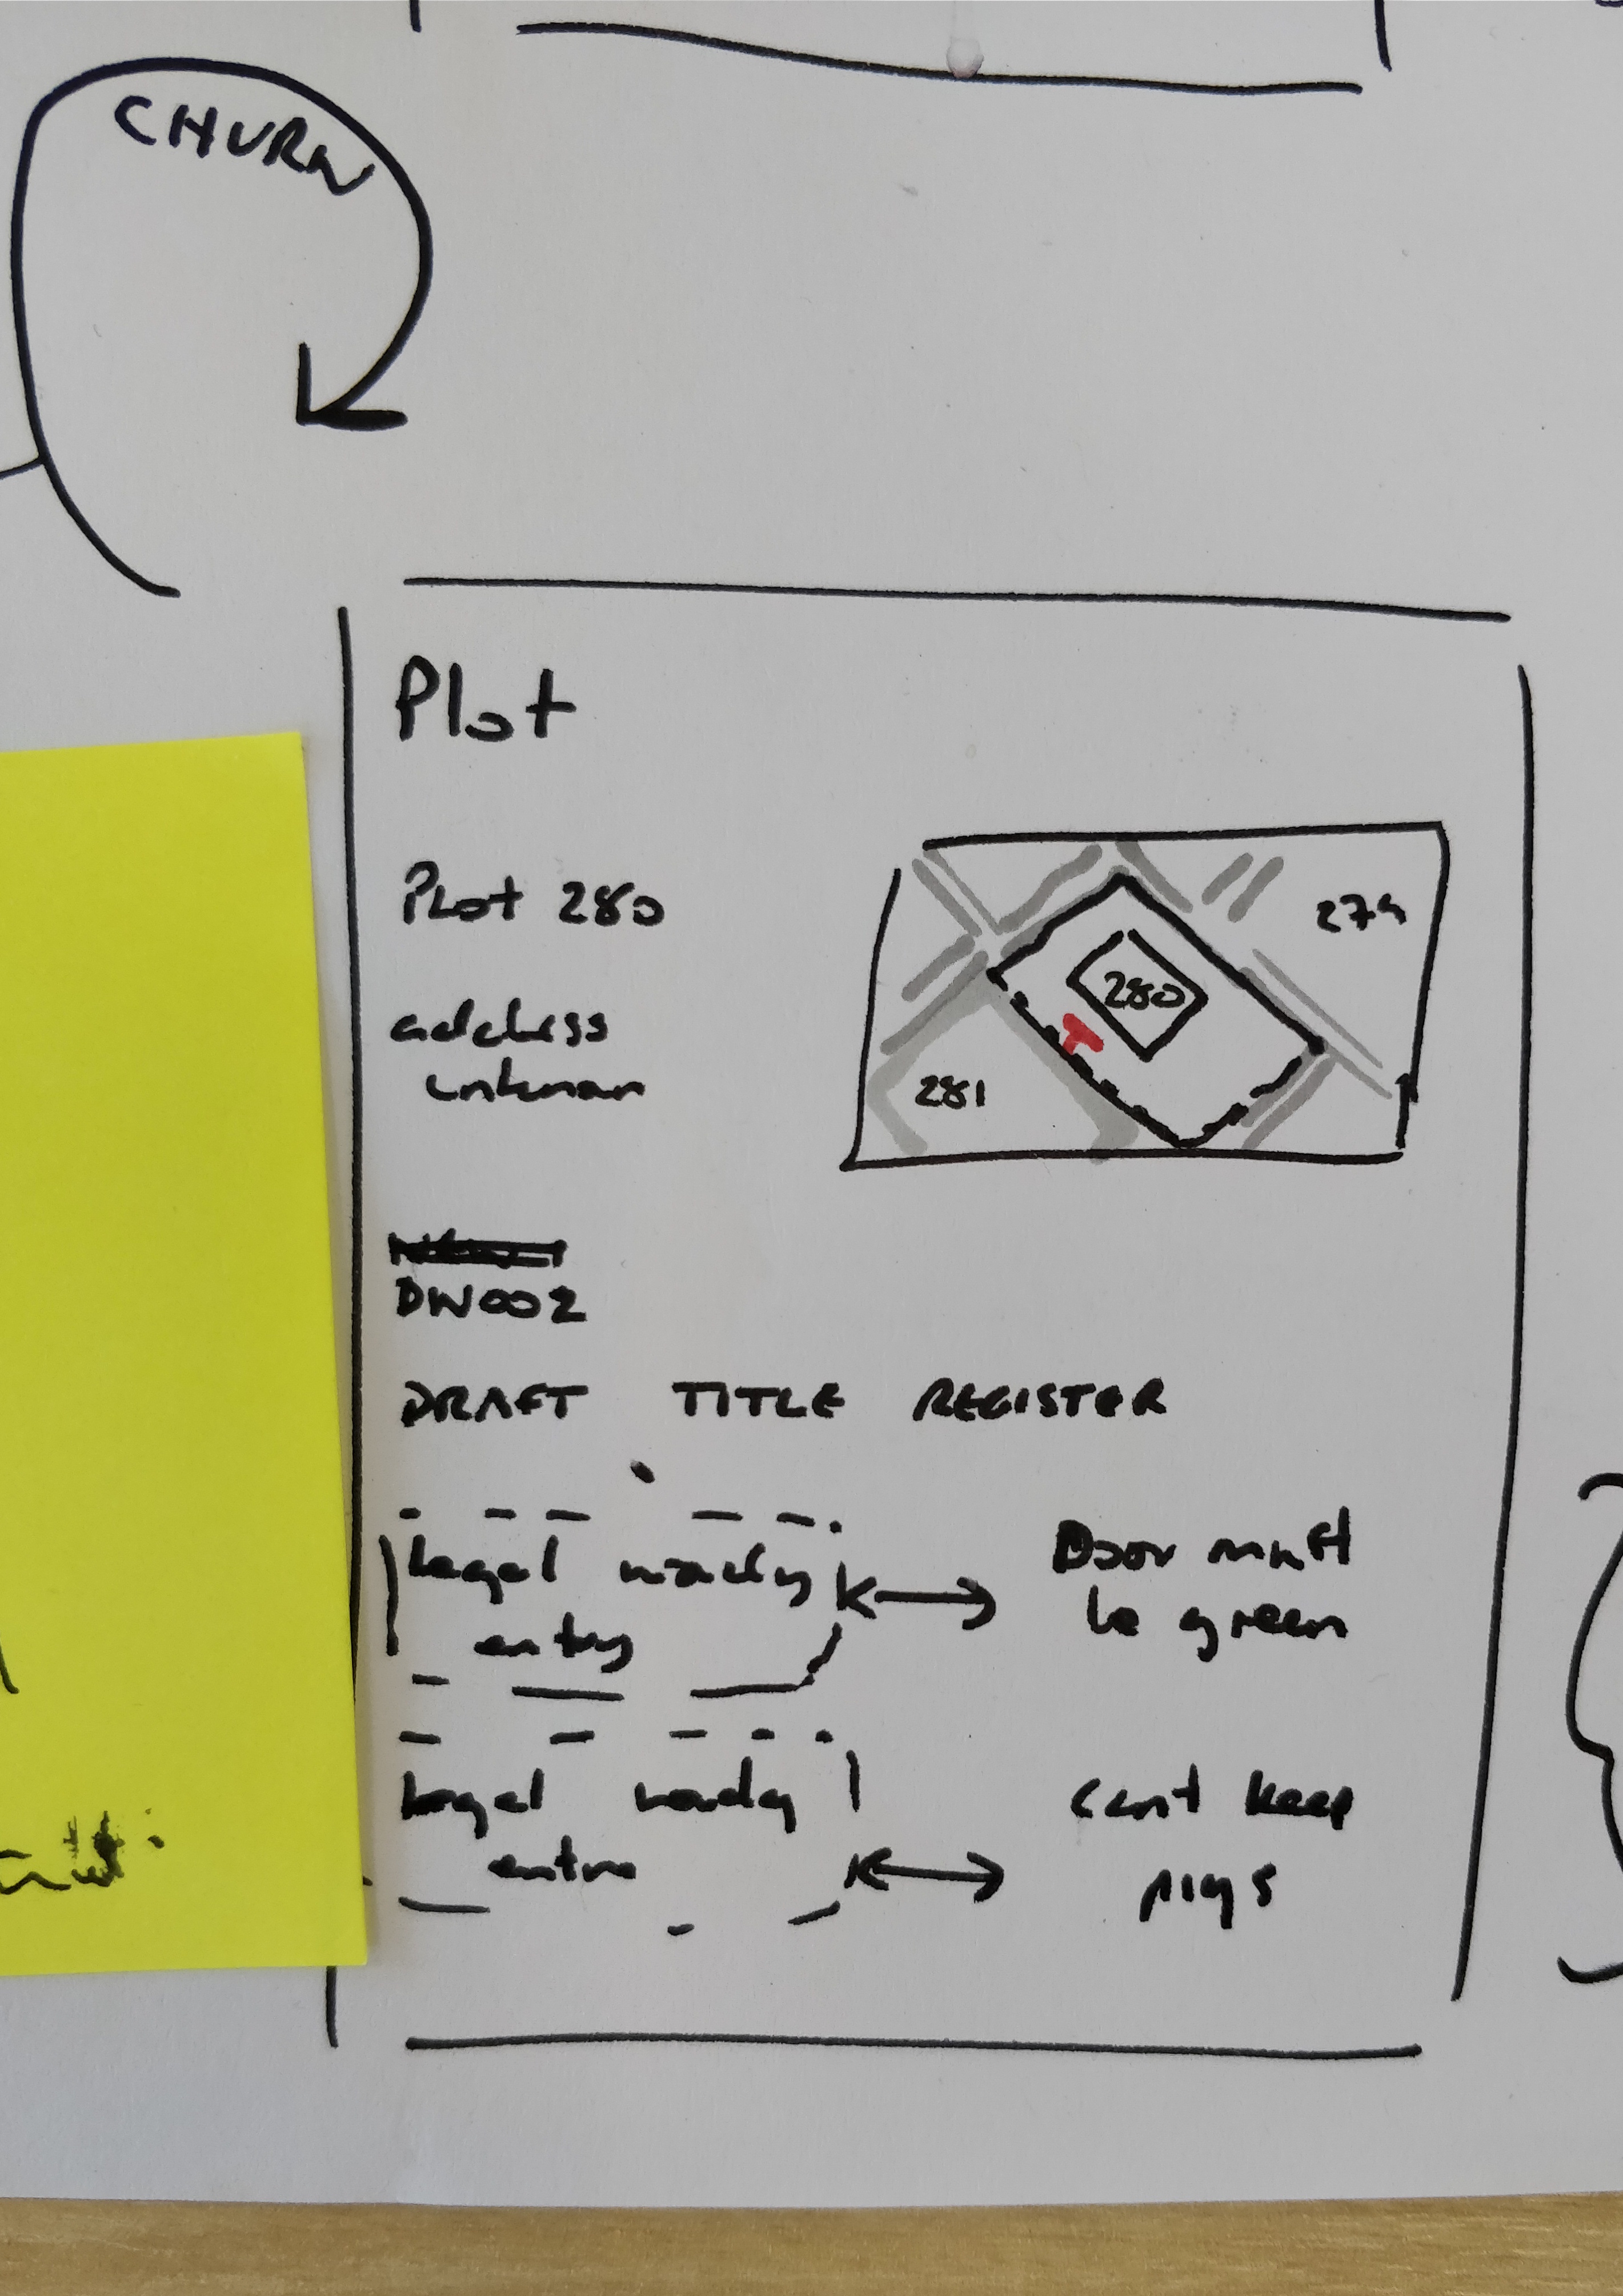 CHURN
Plot
Plot 280
address
unknown
279
280
T
281
DW002
DRAFT TITLE REGISTER
legal ready
entry
Door must
be green
legal ready
entry
can't keep
pigs